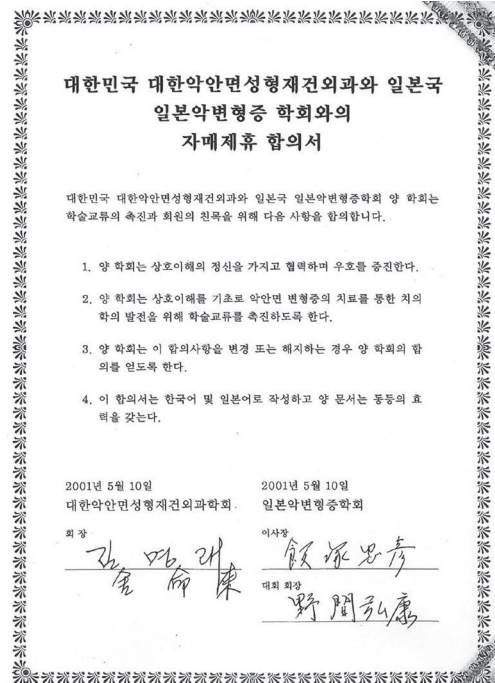 대한민국 대한악안면성형재건외과와 일본국
일본악변형증 학회와의
자매제휴 합의서
대한민국 대한악안면성형재건외과와 일본국 일본악변형증학회 양 학회는
학술교류의 촉진과 회원의 친목을 위해 다음 사항을 합의합니다.
1. 양 학회는 상호이해의 정신을 가지고 협력하며 우호를 증진한다.
2. 양 학회는 상호이해를 기초로 악안면 변형증의 치료를 통한 치의
학의 발전을 위해 학술교류를 촉진하도록 한다.
3. 양 학회는 이 합의사항을 변경 또는 해지하는 경우 양 학회의 합
의를 얻도록 한다.
4. 이 합의서는 한국어 및 일본어로 작성하고 양 문서는 동등의 효
력을 갖는다.
2001년 5월 10일
대한악안면성형재건외과학회
회장
2001년 5월 10일
일본악변형증학회
이사장
飯塚忠彦
대회 회장
野間弘康